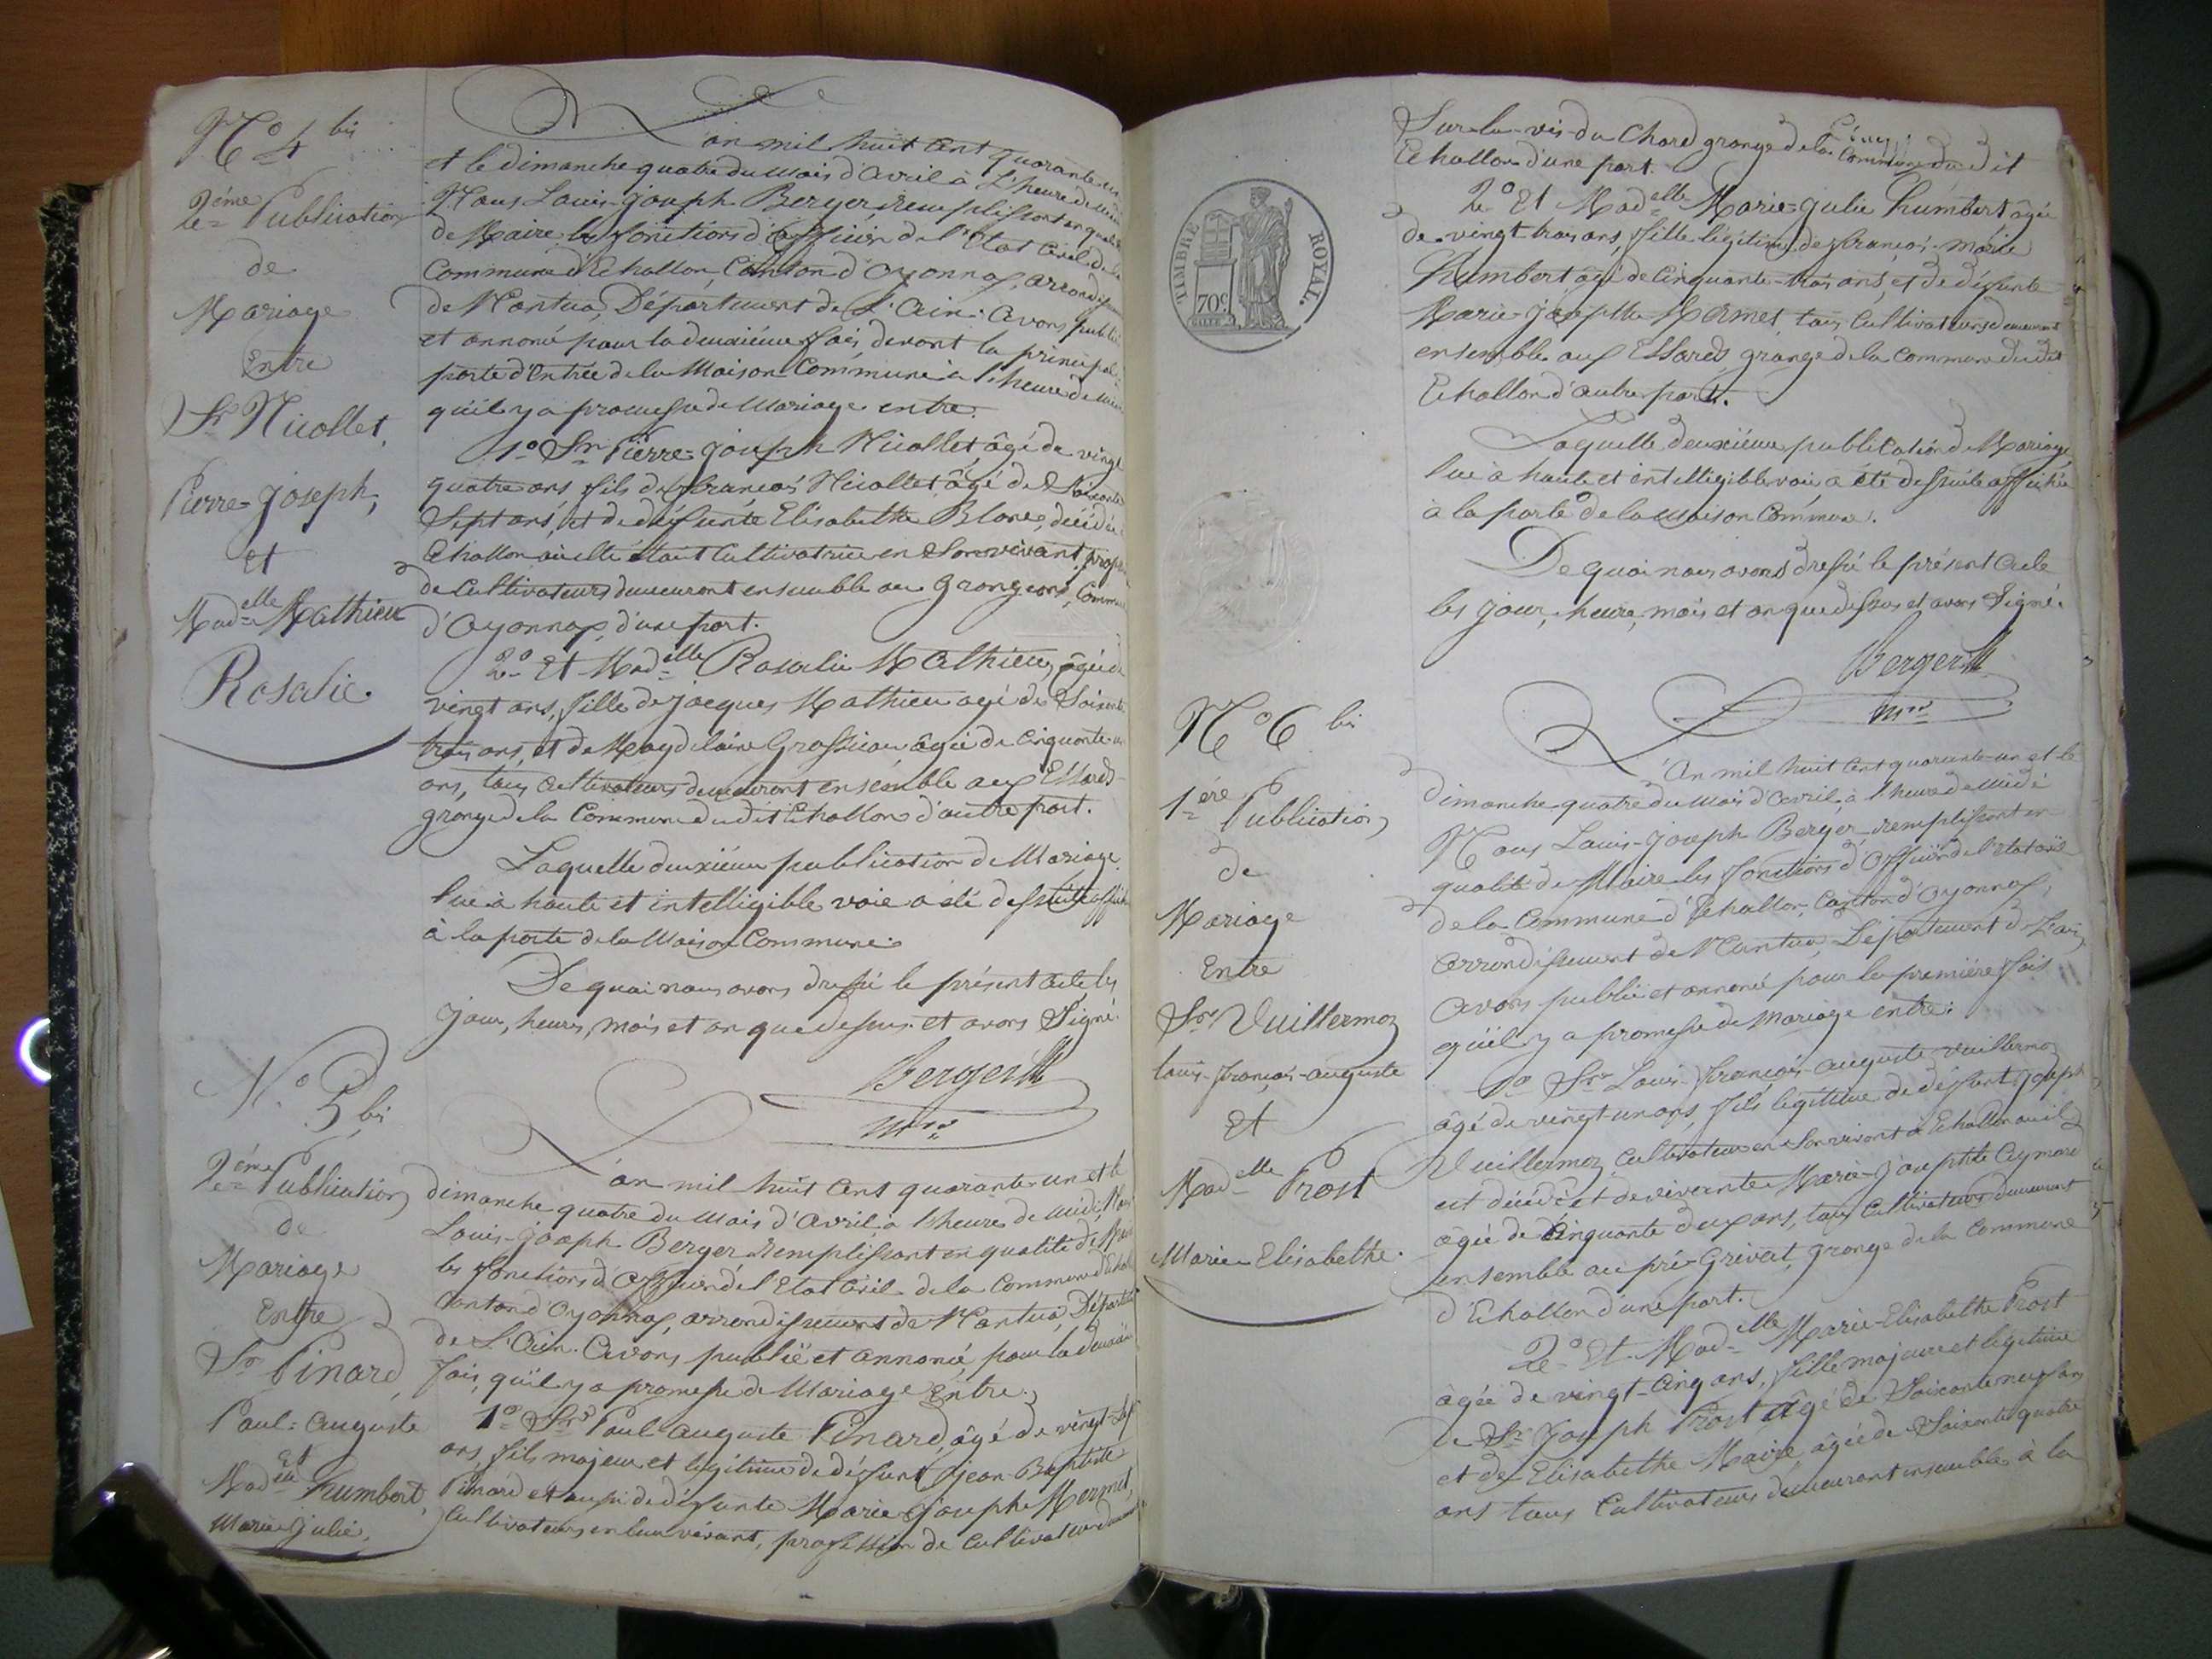 N.º 4 bis
2.ème Publication
de
Mariage
Entre
Sr Nicollet,
Pierre=Joseph,
Et
Madelle Mathieu
Rosalie.
L'an mil huit cent quarante un
et le dimanche quatre du mois d'avril à l'heure de midi
Nous Louis-Joseph Berger, remplissant en qualité
de Maire les fonctions d'officier de l'Etat civil de la
Commune d'Echallon, Canton d'Oyonnax, arrondissem
de Nantua, Département de L'Ain. Avons publié
et annoncé pour la deuxième fois, devant la principale
porte d'Entrée de la Maison Commune à l'heure de midi
qu'il y a promesse de Mariage entre.
1.º Sr Pierre=Joseph Nicollet, âgé de vingt
quatre ans, fils de françois Nicollet, âgé de Soixante
Sept ans, et de défunte Elisabethe Blanc, décédée à
Echallon où elle était Cultivatrice en Son vivant, profession
de Cultivateurs demeurant ensemble au Grangeons, Commune
d'Oyonnax, d'une part.
2.º Et Madelle Rosalie Mathieu, âgée de
vingt ans, fille de Jacques Mathieu agé de Soixante
trois ans, et de Magdelaine Grossiou, âgée de Cinquante un
ans, tous cultivateurs demeurant ensemble aux Essards
grange de la Commune du dit Echallon d'autre part.
Laquelle deuxième publication de Mariage
lue à haute et intelligible voie a été de suite affichée
à la porte de la Maison Commune.
De quoi nous avons dressé le présent acte les
jour, heure, mois et an que dessus et avons Signé.
Berger
mre
N.º 5 bis
2.ème Publication
de
Mariage
Entre
Sr Pinard,
Paul=Auguste
Et
Madelle humbert,
Marie Julie.
L'an mil huit cent quarante-un et le
dimanche quatre du mois d'avril, à l'heure de midi, Nous
Louis-Joseph Berger, remplissant en qualité de Maire
les fonctions d'officier de l'Etat civil de la Commune d'Echal
Canton d'Oyonnax, arrondissement de Nantua, Départem
de L'Ain. Avons publié et annoncé, pour la deuxième
fois, qu'il y a promesse de Mariage Entre.
1.º Sr Paul-Auguste Pinard, âgé de vingt-sept
ans, fils majeur et légitime de défunt Jean-Baptiste
Pinard et aussi de défunte Marie Josephe Mermet,
Cultivateurs en leur vivant, profession de Cultivateur demeurant
TIMBRE ROYAL.
70c
Sur-la-vis-du Chard grange de la Commune du dit
Echallon d'une part.
2.º Et Madelle Marie=Julie humbert âgée
de vingt trois ans, fille légitime de françois-marie
humbert agé de Cinquante-trois ans, et de défunte
Marie-Josephte Mermet, tous Cultivateurs demeurant
ensemble aux Essards, grange de la Commune du dit
Echallon d'autre part.
Laquelle deuxième publication de Mariage
lue à haute et intelligible voie, a été de suite affichée
à la porte de la Maison Commune.
De quoi nous avons dressé le présent acte
les jour, heure, mois et an que dessus et avons Signé.
Berger
mre
N.º 6 bis
1.ère Publication
de
Mariage
Entre
Sr Vuillermoz
Louis-françois-auguste
Et
Madelle Prost
Marie-Elisabethe.
L'an mil huit cent quarante-un et le
dimanche quatre du mois d'avril, à l'heure de midi
Nous Louis-Joseph Berger, remplissant en
qualité de Maire les fonctions d'Officier de l'etat civil
de la Commune d'Echallon, Canton d'Oyonnax,
arrondissement de Nantua, Département de L'ain,
avons publié et annoncé pour la première fois
qu'il y a promesse de Mariage entre:
1.º Sr Louis-françois-auguste Vuillermoz
âgé de vingt-un ans, fils légitime de défunt Joseph
Vuillermoz, Cultivateur en Son vivant à Echallon où il
est décédé et de vivante Marie-Josephte Aymard
agée de Cinquante deux ans, tous Cultivateurs demeurant
ensemble au pré-Grivet, grange de la Commune
d'Echallon d'une part.
2.º Et Madelle Marie-Elisabethe Prost
âgée de vingt-cinq ans, fille majeure et légitime
de Sr Joseph Prost âgé de Soixante neuf ans
et de Elisabethe Maire, âgée de Soixante quatre
ans tous Cultivateurs demeurant ensemble à la